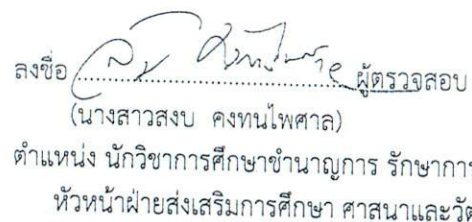 ลงชื่อ ผู้ตรวจสอบ
(นางสาวสงบ คงทนไพศาล)
ตำแหน่ง นักวิชาการศึกษาชำนาญการ รักษากา
หัวหน้าฝ่ายส่งเสริมการศึกษา ศาสนาและวั